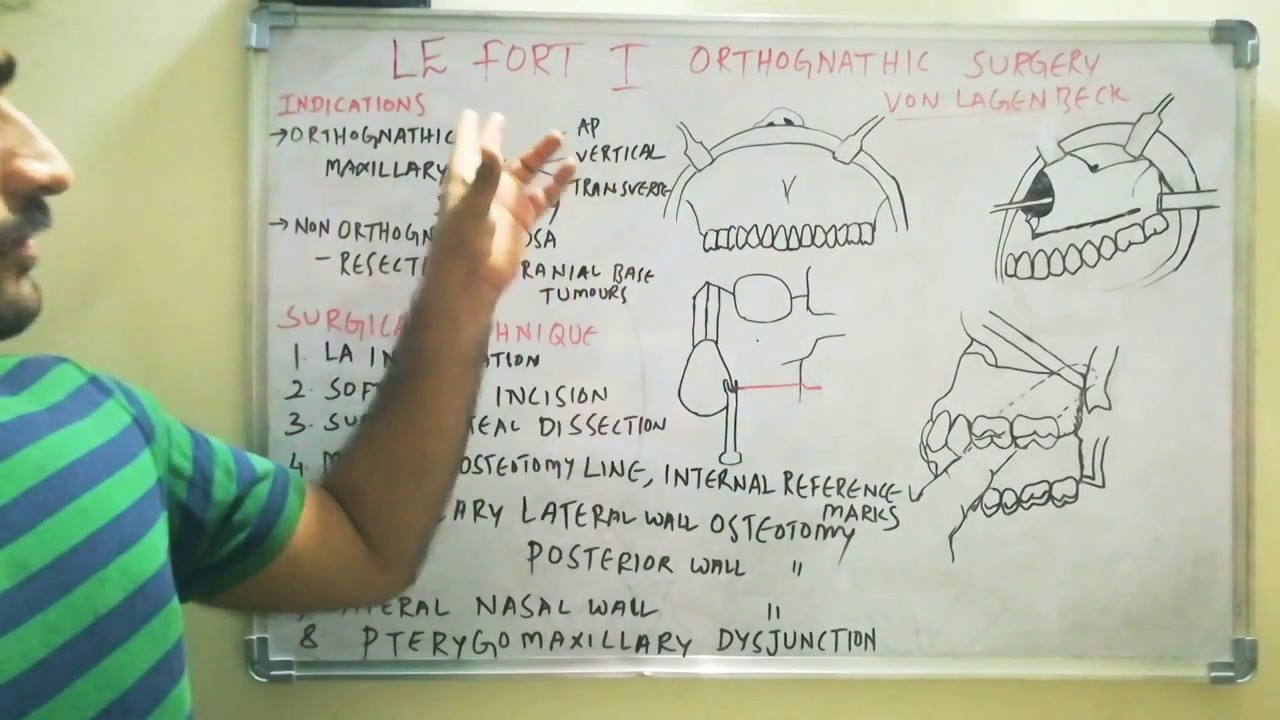 LE FORT I ORTHOGNATHIC SURGERY
VON LAGENBECK
INDICATIONS
→ ORTHOGNATHIC
MAXILLARY
AP
VERTICAL
TRANSVERSE
→ NON ORTHOGN OSA
- RESECTI RANIAL BASE
TUMOURS
SURGICA HNIQUE
1. LA IN ATION
2. SOF INCISION
3. SU TEAL DISSECTION
4. M OSTEOTOMY LINE, INTERNAL REFERENCE
MARKS
LARY LATERAL WALL OSTEOTOMY
POSTERIOR WALL "
LATERAL NASAL WALL "
8 PTERYGOMAXILLARY DYSJUNCTION